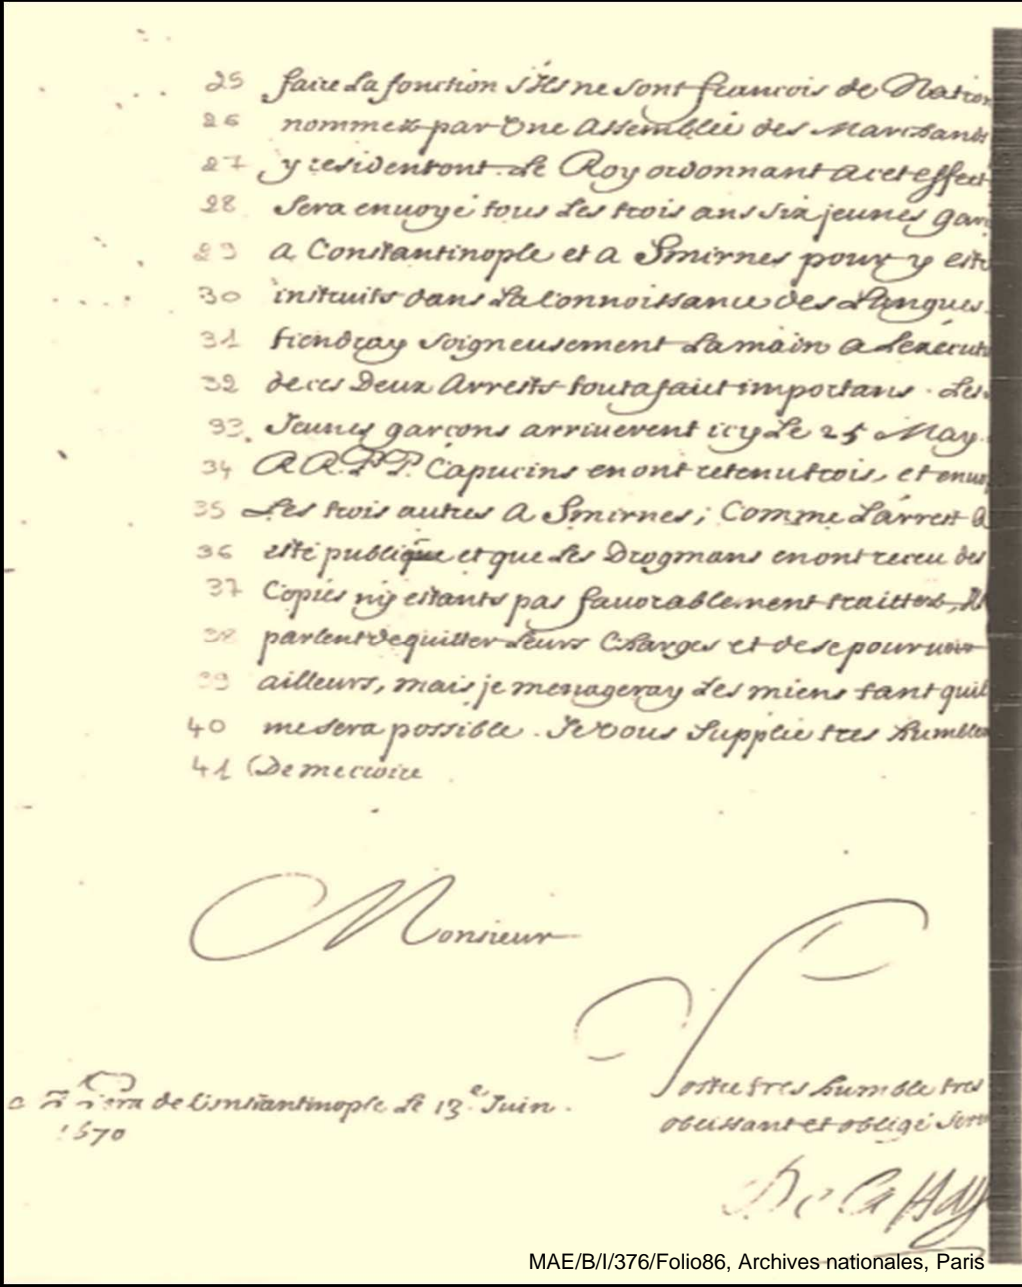 25 faire La fonction s'Ils ne sont francois de Nation
26 nommez par Une Assemblée des Marchands
27 y residentont. Le Roy ordonnant a cet effect
28 sera enuoyé tous Les trois ans six jeunes gar
29 a Constantinople et a Smirnes pour y estr
30 instruits dans La Connoissance des Langues.
31 tiendray soigneusement La main a Lexécuti
32 de ces Deux Arrests toutafait importans. Les
33. Jeunes garçons arriuerent icy Le 25 May.
34 R R. P P. Capucins en ont retenu trois, et enuoy
35 Les trois autres a Smirnes; Comme L'arrest a
36 esté publique et que Les Drogmans en ont receu des
37 Copies n'y estants pas fauorablement traittez, Ils
38 parlent de quitter Leurs Charges et de se pouruoir
39 ailleurs, mais je menageray Les miens tant quil
40 me sera possible. Je Vous Supplie tres humblem
41 De me croire
Monsieur
Vostre tres humble tres
obeissant et obligé seru
a Pera de Constantinople Le 13.e Juin.
1670
De La Hay
MAE/B/I/376/Folio86, Archives nationales, Paris